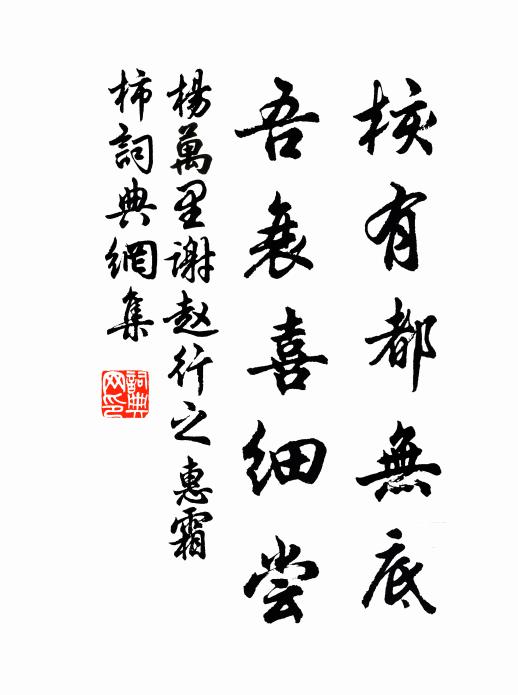 核有都無底
吾衰喜細尝
楊萬里谢赵行之惠霜
柿詞典網集
詞典
网印